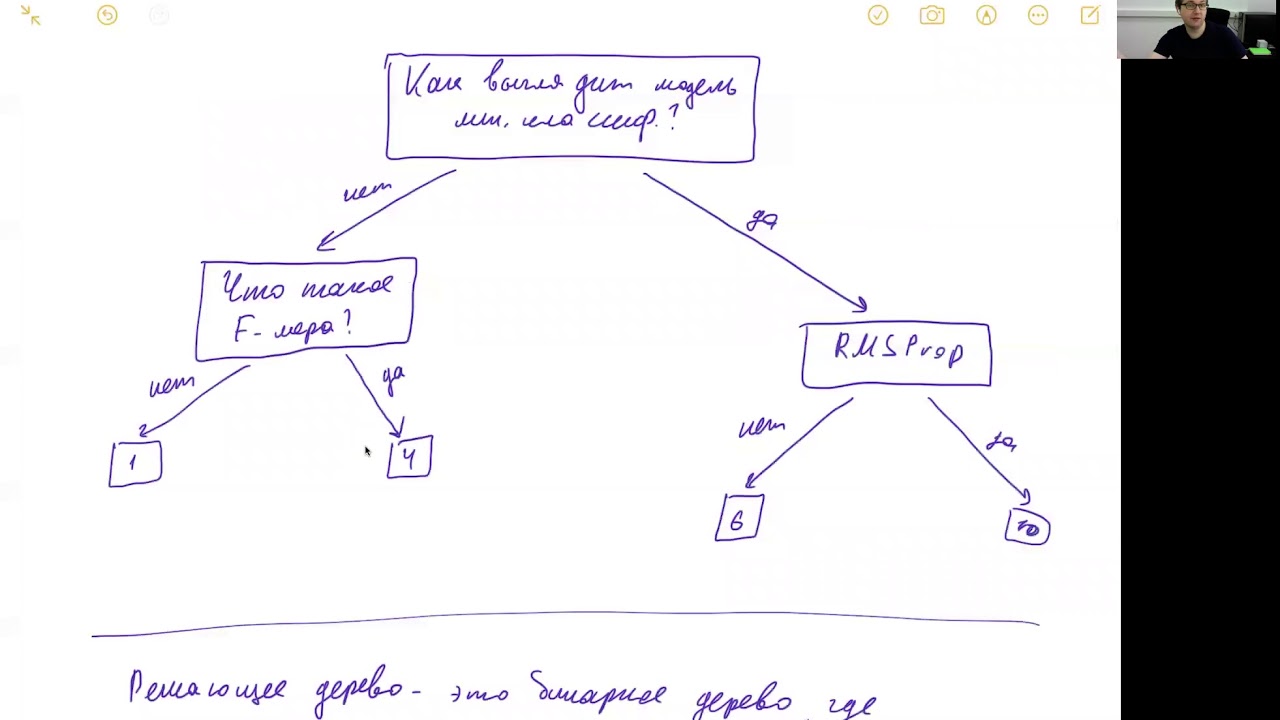 Как выглядит модель
лин. классиф.?
нет
да
Что такое
F-мера?
RMSProp
нет
да
нет
да
1
4
6
10
Решающее дерево - это бинарное дерево, где